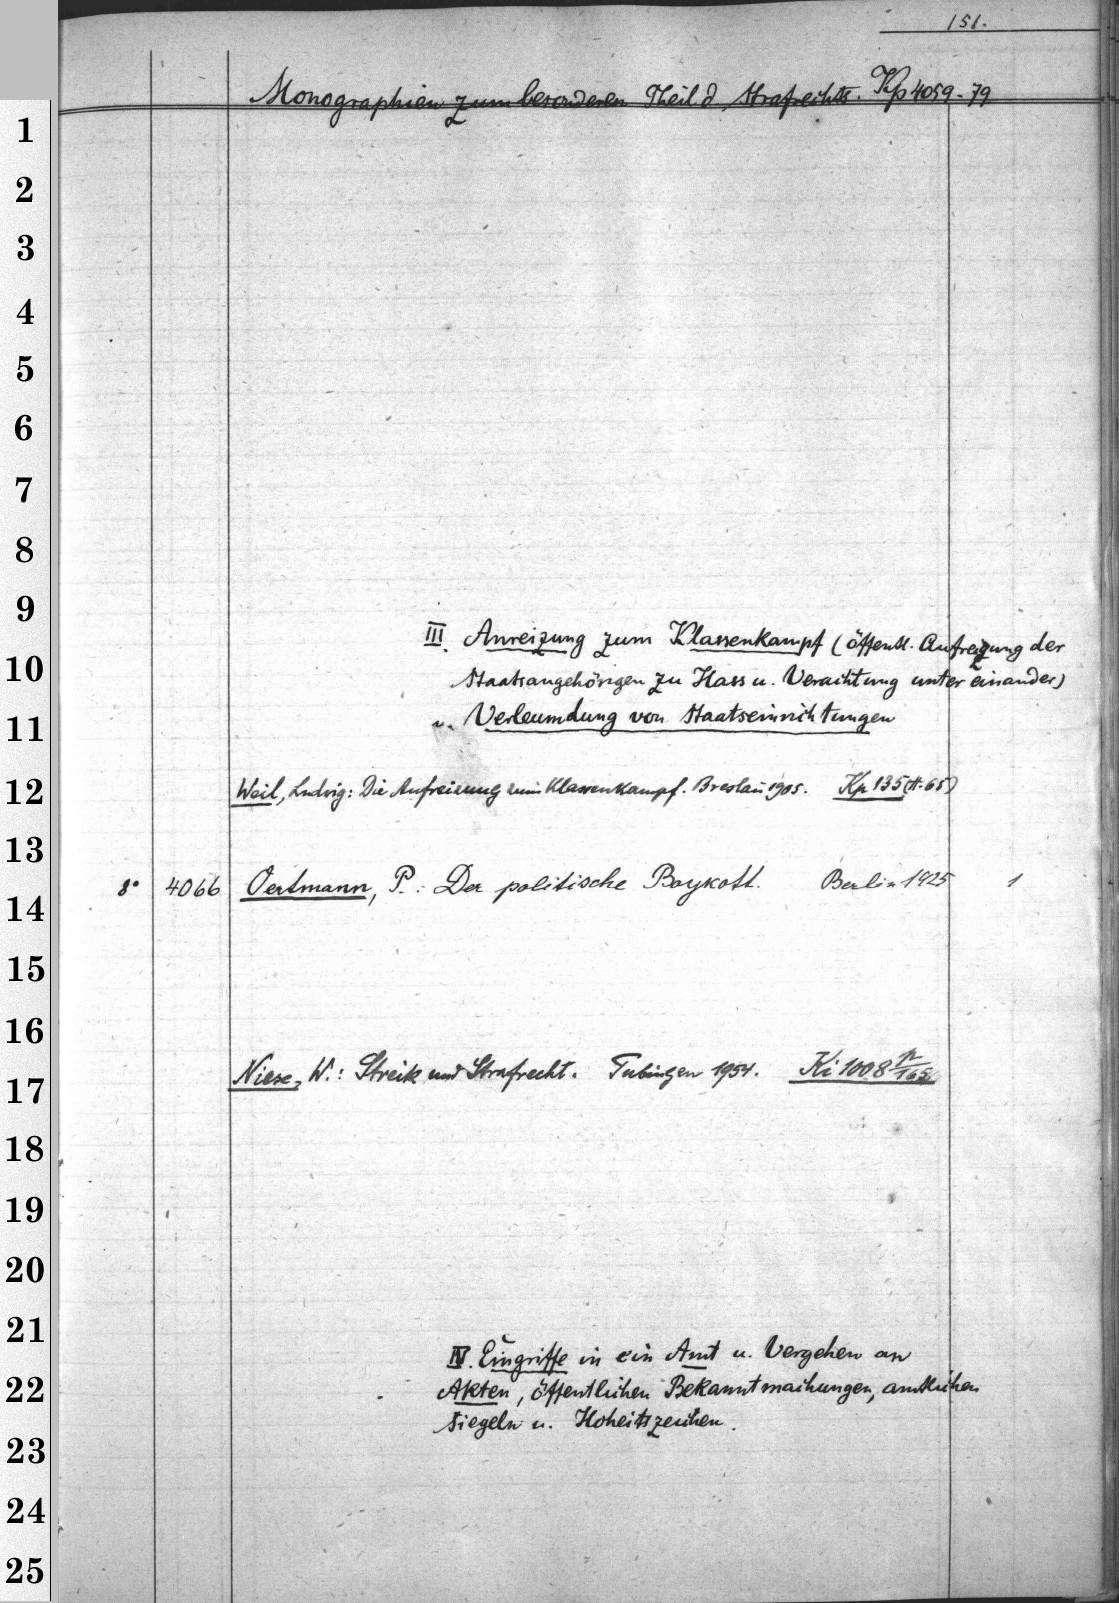 151.
Monographien zum besonderen Theil d. Strafrechts. Kp 4059-79
1
2
3
4
5
6
7
8
9
III. Anreizung zum Klassenkampf (öffentl. Aufreizung der
10
Staatsangehörigen zu Hass u. Verachtung unter einander)
11
u. Verleumdung von Staatseinrichtungen
12
Weil, Ludwig: Die Aufreizung zum Klassenkampf. Breslau 1905. Kp 135 (H. 65)
13
8° 4066 Oertmann, P.: Der politische Boykott. Berlin 1925 1
14
15
16
Niese, W.: Streik und Strafrecht. Tübingen 1954. Ki 1008
17
18
19
20
21
IV. Eingriffe in ein Amt u. Vergehen an
22
Akten, öffentlichen Bekanntmachungen, amtlichen
Siegeln u. Hoheitszeichen.
23
24
25